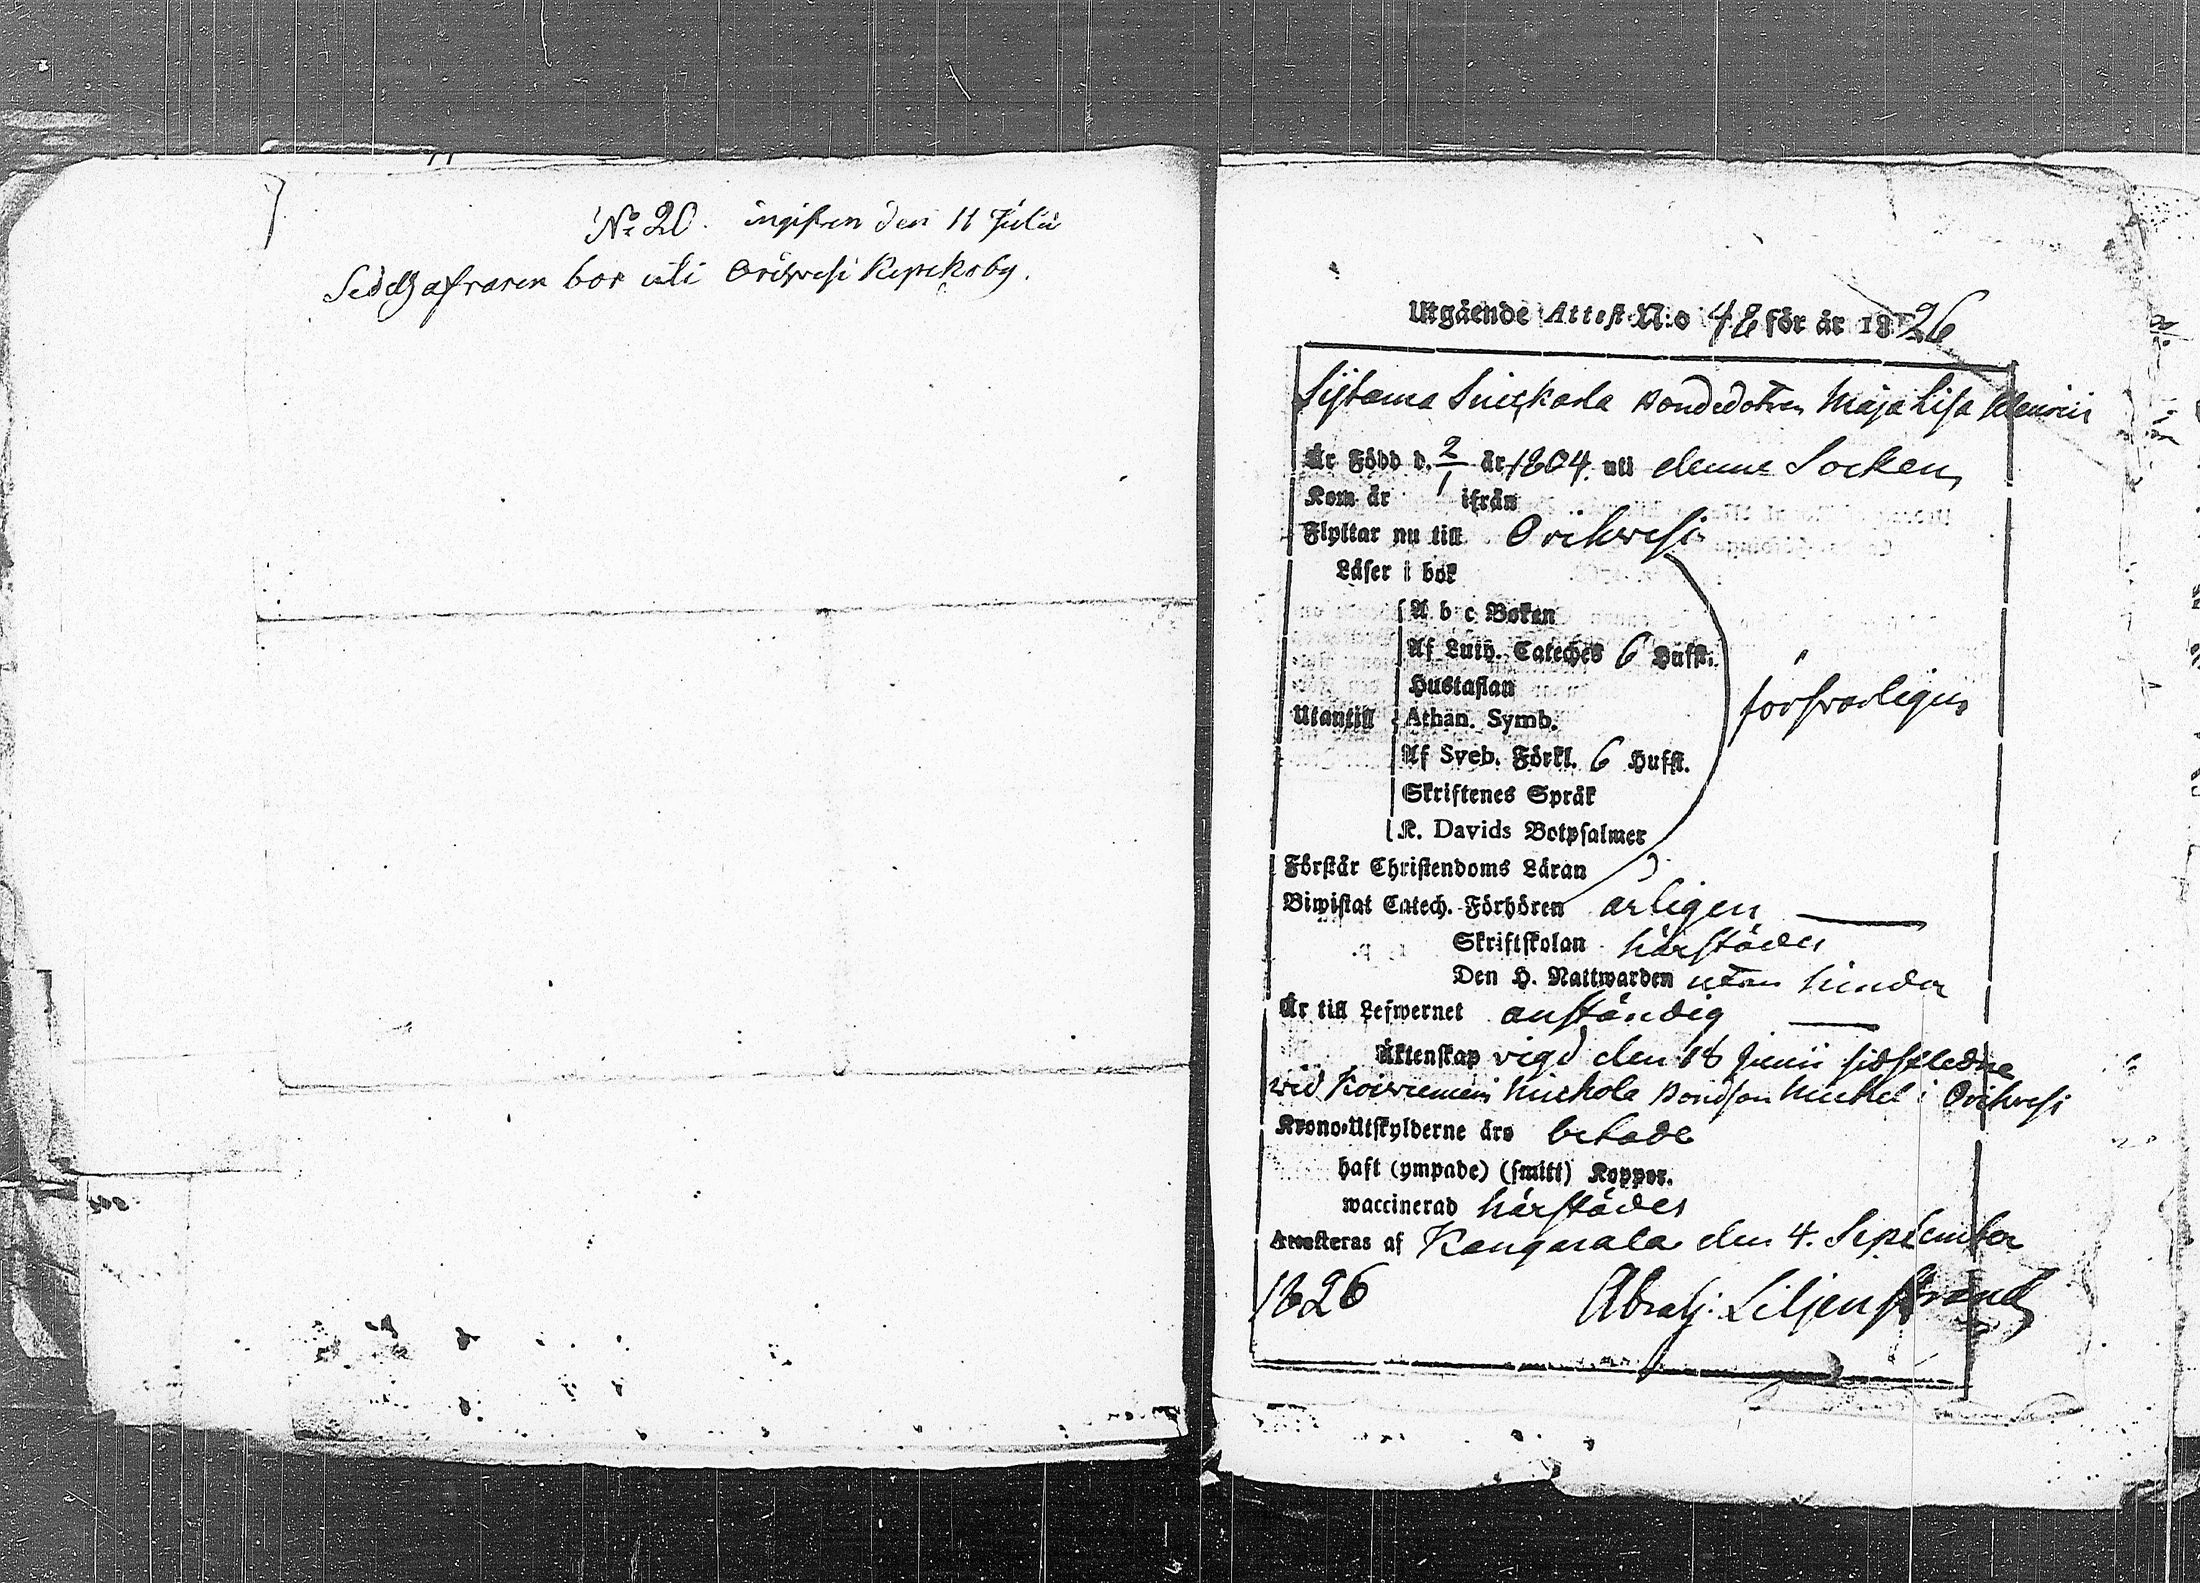 No 20. ingifven den 11 Julii
bor uti Orihvesi
Utgående Attest N:o 48 för år 1826
Bondedotren Maja Lisa Henrics
Är Född d. 2/1 år 1804. uti denne Socken
Kom år ifrån
Flyttar nu till Orihvesi
Läser i bok
A b c Boken
Af Luth. Cateches 6 Hufst.
Hustaflan
Utantill Athan. Symb. försvarligen
Af Sveb. Förkl. 6 Hufst.
Skriftenes Språk
K. Davids Botpsalmer
Förstår Christendoms Läran
Biwistat Catech. Förhören årligen
Skriftskolan härstädes
Den H. Nattwarden utan hinder
Är till Lefwernet anständig
Äktenskap vigd den 18 Junii sidstledne
wid Bondson Michel i Orihvesi
Krono-Utskylderne äro betade
haft (ympade) (smitt) Koppor.
waccinerad härstädes
Attesteras af Kangasala den 4. September
1826 Abrah: Liljenstrand